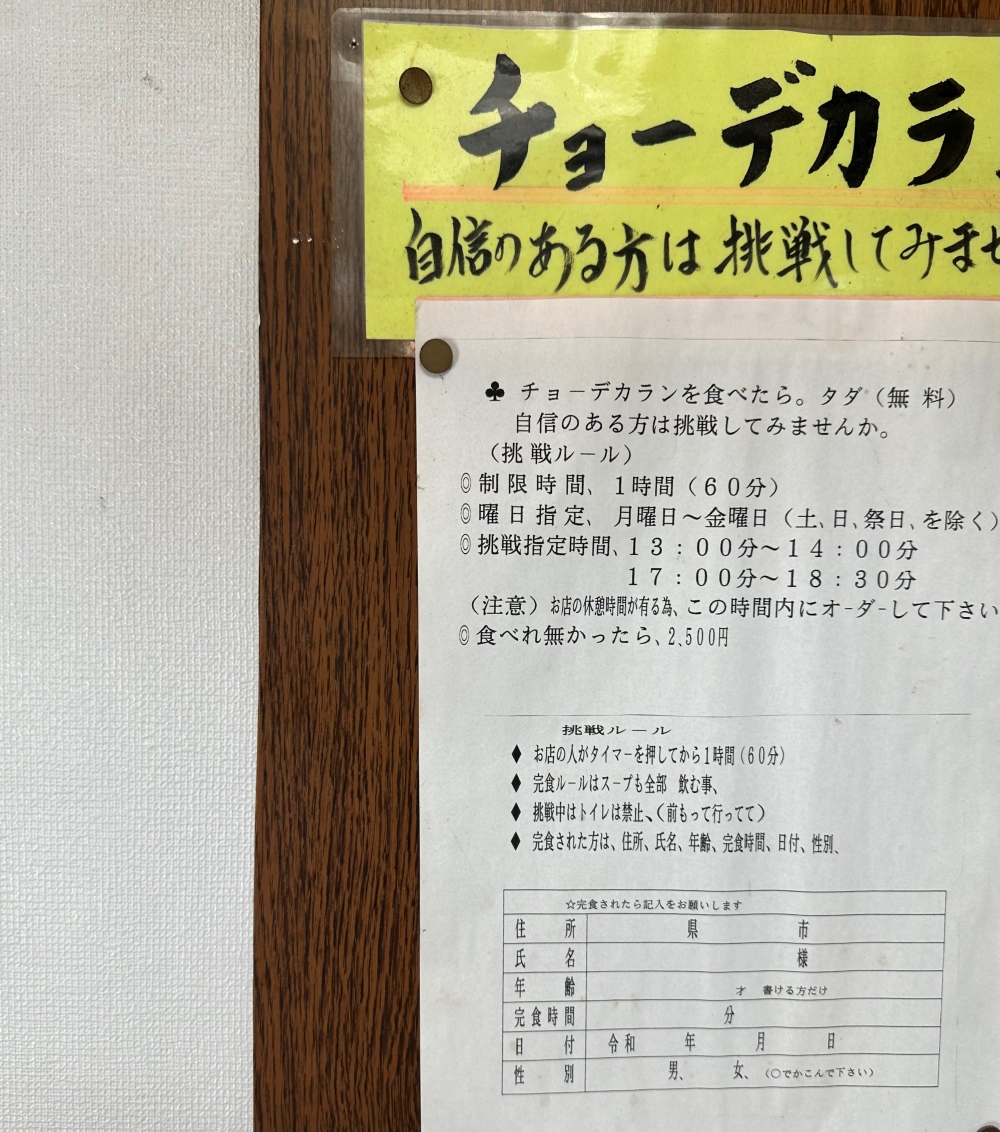 チョーデカラ
自信のある方は挑戦してみませ
♣ チョーデカランを食べたら。タダ（無 料）
自信のある方は挑戦してみませんか。
（挑 戦ル－ル）
◎制 限 時 間、 1時間（６０分）
◎曜 日 指 定、 月曜日～金曜日（土、日、祭日、を除く）
◎挑戦指定時間、１３：００分～１４：００分
１７：００分～１８：３０分
（注意）お店の休憩時間が有る為、この時間内にオ-ダ-して下さい
◎食べれ無かったら、2,500円
挑戦ル－ル
♦ お店の人がタイマーを押してから1時間（６０分）
♦ 完食ルールはスープも全部 飲む事、
♦ 挑戦中はトイレは禁止、（前もって行ってて）
♦ 完食された方は、住所、氏名、年齢、完食時間、日付、性別、
☆完食されたら記入をお願いします
住 所 県 市
氏 名 様
年 齢 才 書ける方だけ
完食時間 分
日 付 令和 年 月 日
性 別 男、 女、（〇でかこんで下さい）